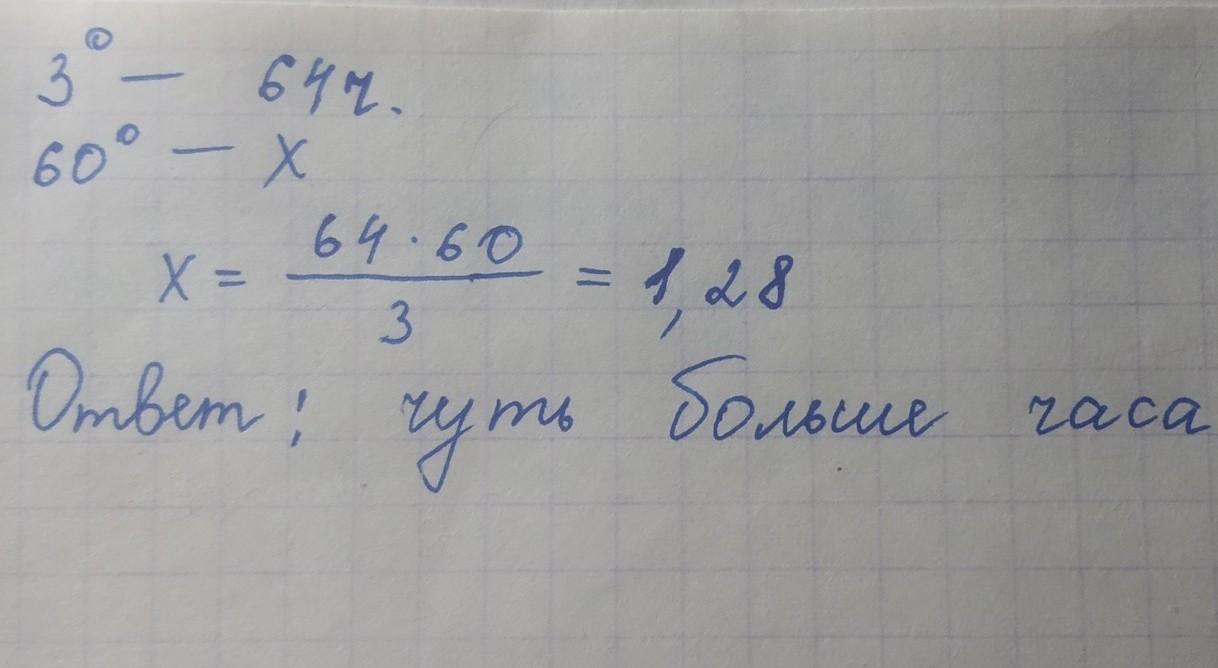 3° — 64ч.
60° — x
x = 64 · 60 / 3 = 1,28
Ответ: чуть больше часа